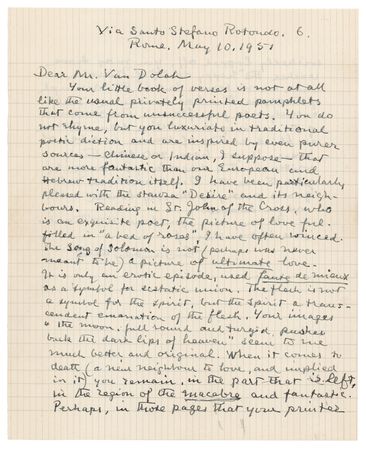 Via Santo Stefano Rotondo. 6.
Rome. May 10, 1951
Dear Mr. Van Dolah
Your little book of verses is not at all
like the usual privately printed pamphlets
that come from unsuccessful poets. You do
not rhyme, but you luxuriate in traditional
poetic diction and are inspired by even purer
sources — Chinese or Indian, I suppose — that
are more fantastic than our European and
Hebrew tradition itself. I have been particularly
pleased with the stanza "Desire" and its neigh-
bours. Reading in St. John of the Cross, who
is an exquisite poet, the picture of love ful-
filled in "a bed of roses", I have often winced.
The Song of Solomon is not (perhaps was never
meant to be) a picture of ultimate love.
It is only an erotic episode, used faute de mieux
as a symbol for ecstatic union. The flesh is not
a symbol for the spirit, but the spirit a trans-
cendent emanation of the flesh. Your images
"the moon, full round and turgid, pushes
back the dark lips of heaven" seem to me
much better and original. When it comes to
death (a near neighbour to love, and implied
in it) you remain, in the part that is left,
in the region of the macabre and fantastic.
Perhaps, in those pages that your printer